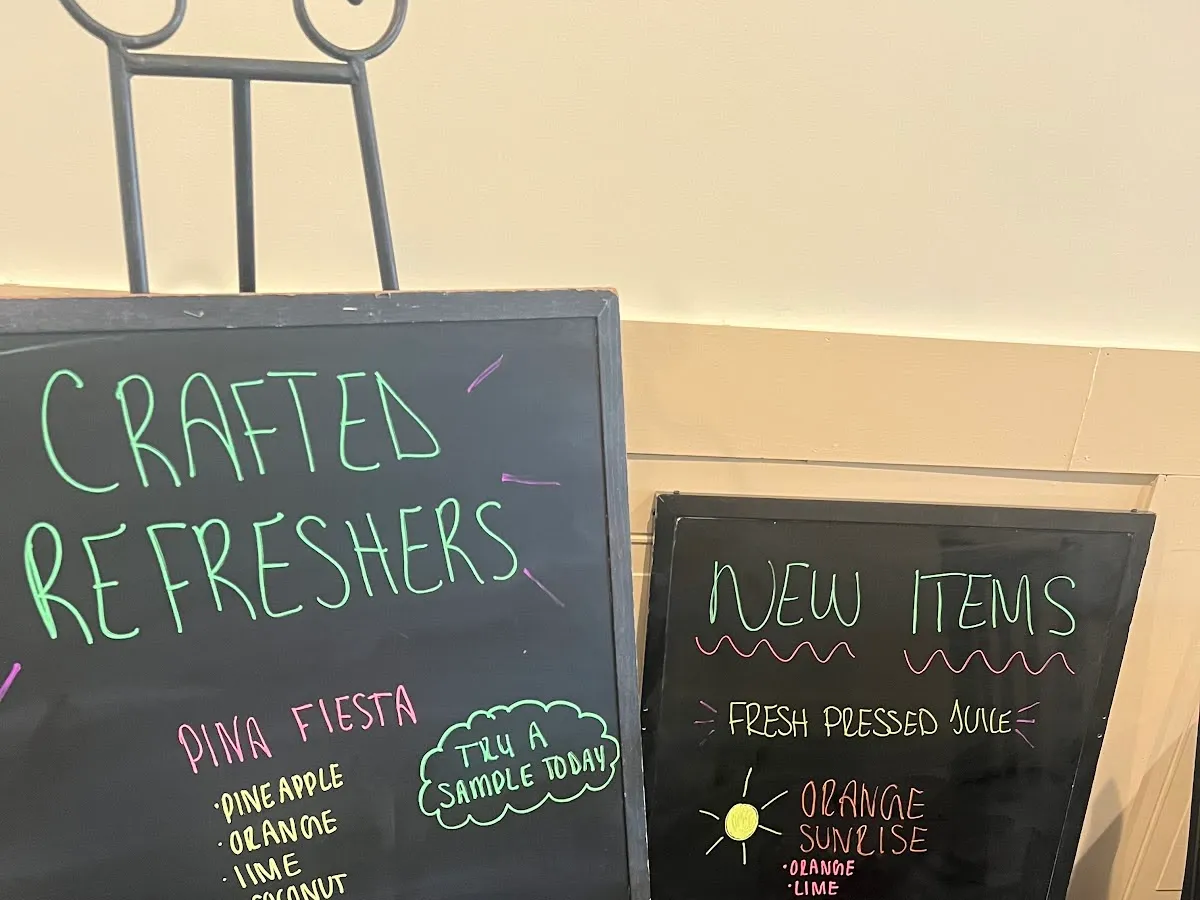 CRAFTED
REFRESHERS
PINA FIESTA
TRY A
SAMPLE TODAY
·PINEAPPLE
·ORANGE
·LIME
COCONUT
NEW ITEMS
FRESH PRESSED JUICE
ORANGE
SUNRISE
·ORANGE
·LIME